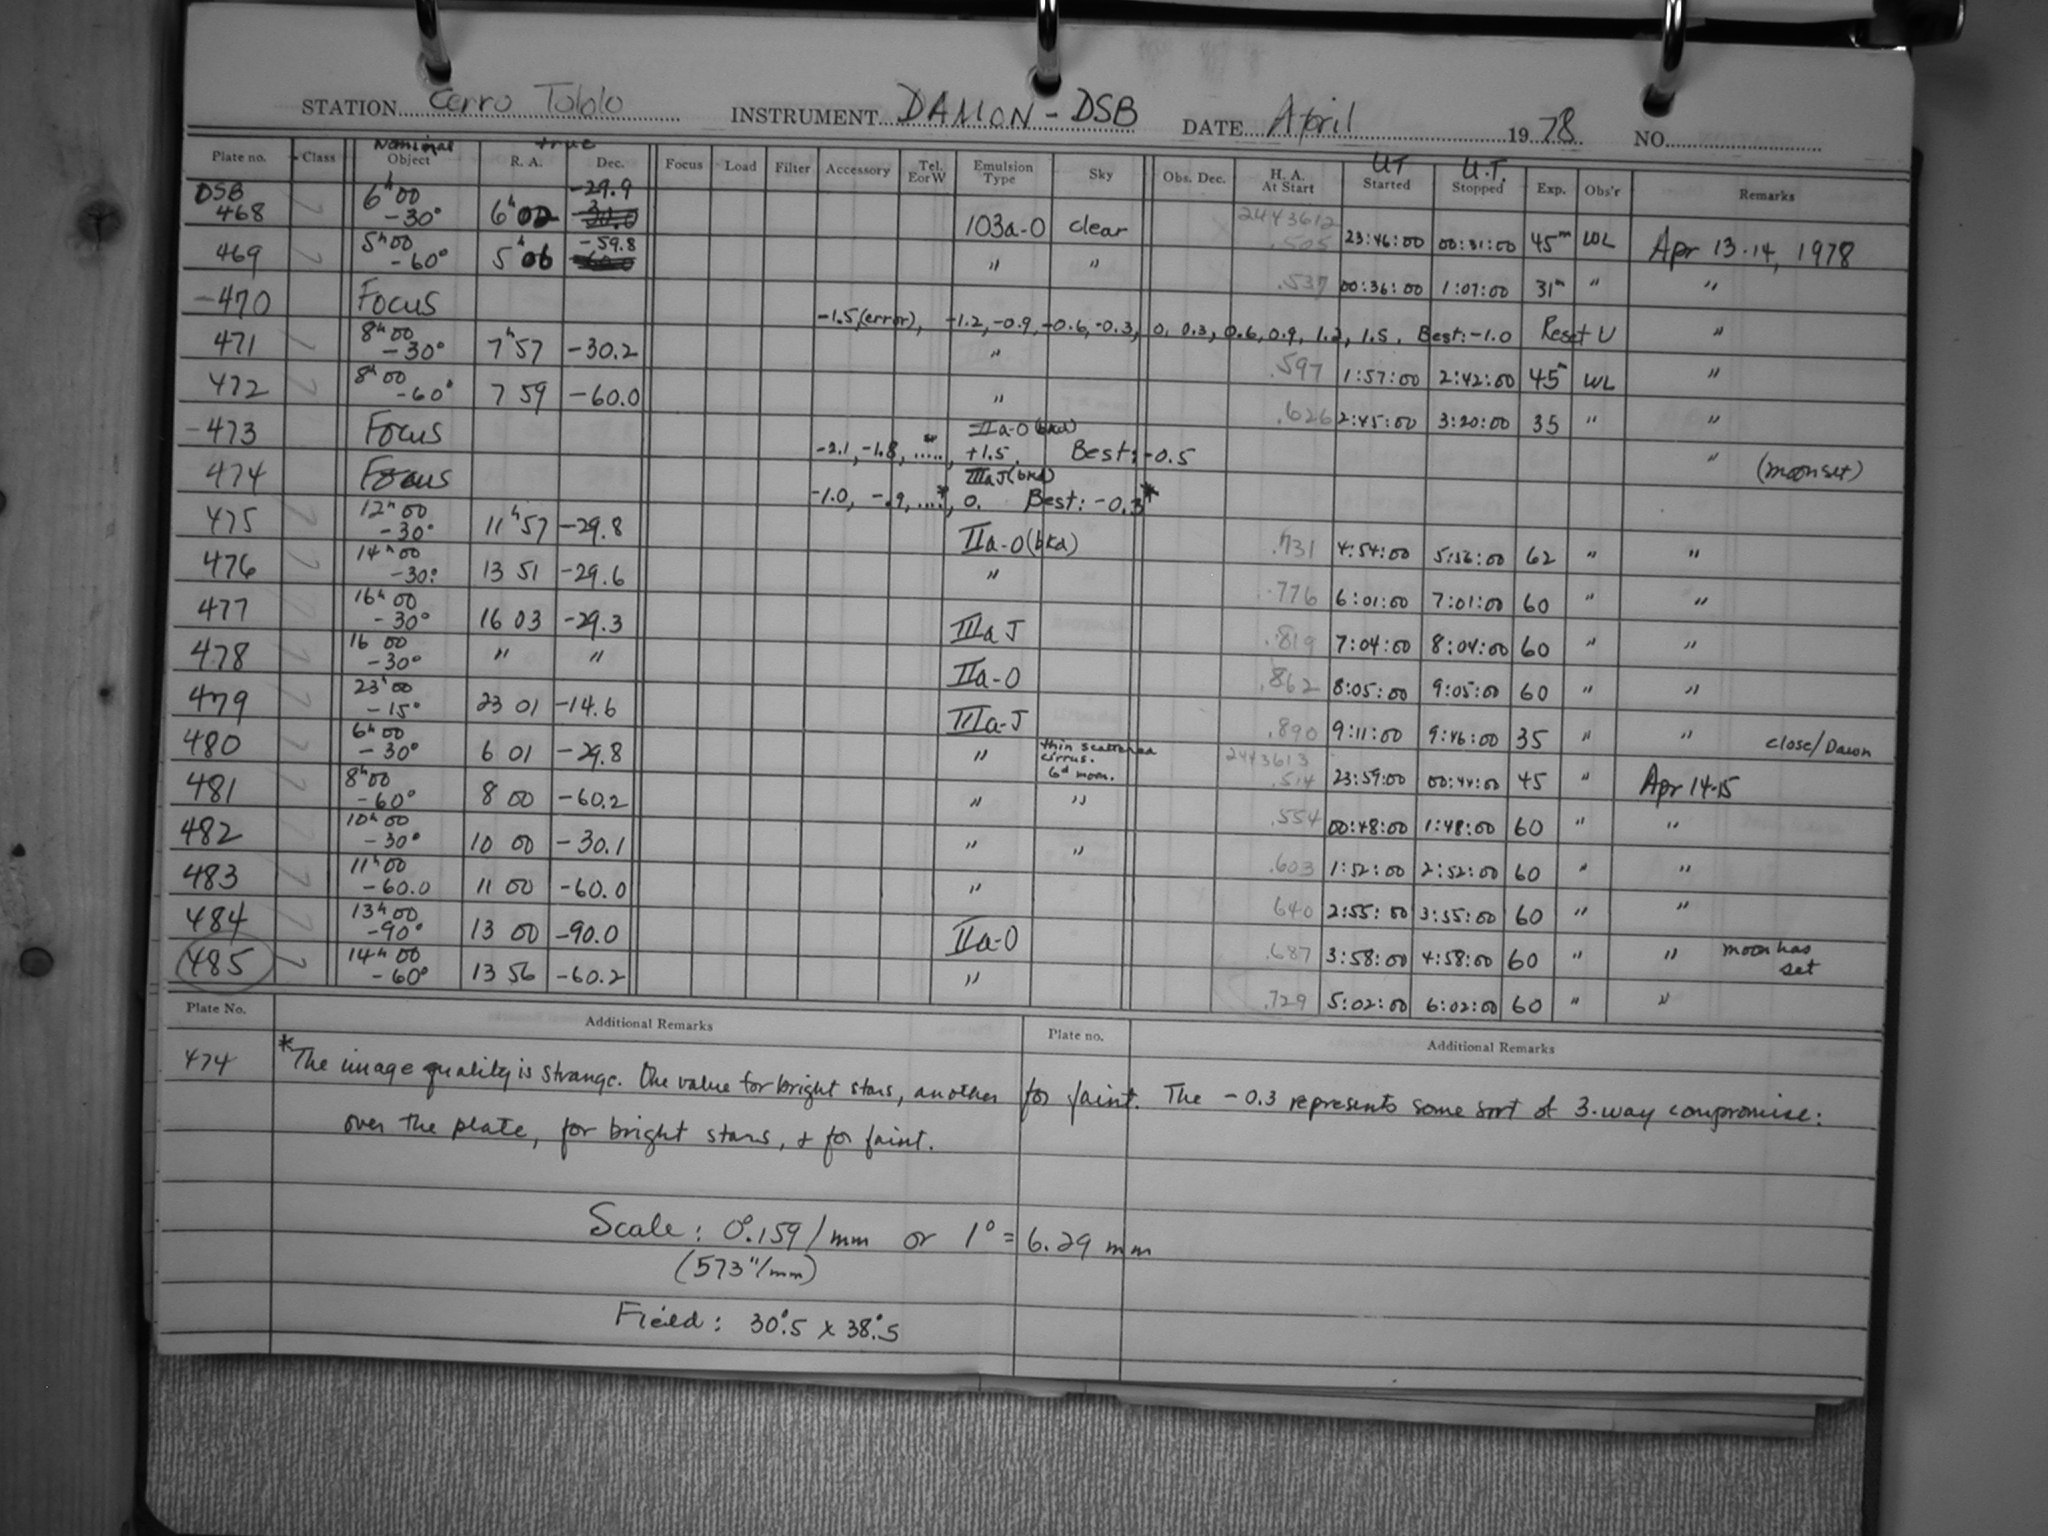 STATION Cerro Tololo INSTRUMENT DAMON - DSB DATE April 1978 NO.
Plate no. Class Nominal Object true R. A. Dec. Focus Load Filter Accessory Tel. E or W Emulsion Type Sky Obs. Dec. H. A. At Start UT Started U.T. Stopped Exp. Obs'r Remarks
DSB 468 6h00 -30° 6h02 -29.9 103a-O clear 2443612 .505 23:46:00 00:31:00 45m WL Apr 13-14, 1978
469 5h00 -60° 5h06 -59.8 " " .537 00:36:00 1:07:00 31m " "
-470 Focus -1.5 (error), -1.2, -0.9, -0.6, -0.3, 0, 0.3, 0.6, 0.9, 1.2, 1.5. Best: -1.0 Reset U "
471 8h00 -30° 7h57 -30.2 " .597 1:57:00 2:42:00 45m WL "
472 8h00 -60° 7 59 -60.0 " .626 2:45:00 3:20:00 35 " "
-473 Focus IIa-O (bkd) -2.1, -1.8, ....., +1.5. Best: -0.5 " (moonset)
474 Focus IIIaJ (bkd) -1.0, -.9, ....*, 0. Best: -0.3*
475 12h00 -30° 11h57 -29.8 IIa-O (bkd) .731 4:54:00 5:56:00 62 " "
476 14h00 -30° 13 51 -29.6 " .776 6:01:00 7:01:00 60 " "
477 16h00 -30° 16 03 -29.3 IIIa J .819 7:04:00 8:04:00 60 " "
478 16 00 -30° " " IIa-O .862 8:05:00 9:05:00 60 " "
479 23h00 -15° 23 01 -14.6 IIIa-J .890 9:11:00 9:46:00 35 " " close/Dawn
480 6h00 -30° 6 01 -29.8 " thin scattered cirrus. 6d moon. 2443613 .514 23:59:00 00:44:00 45 " Apr 14-15
481 8h00 -60° 8 00 -60.2 " " .554 00:48:00 1:48:00 60 " "
482 10h00 -30° 10 00 -30.1 " " .603 1:52:00 2:52:00 60 " "
483 11h00 -60.0 11 00 -60.0 " 640 2:55:00 3:55:00 60 " "
484 13h00 -90° 13 00 -90.0 IIa-O .687 3:58:00 4:58:00 60 " " moon has set
485 14h00 -60° 13 56 -60.2 " .729 5:02:00 6:02:00 60 " "
Plate No. Additional Remarks Plate no. Additional Remarks
474 *The image quality is strange. One value for bright stars, another for faint. The -0.3 represents some sort of 3-way compromise:
over the plate, for bright stars, & for faint.
Scale: 0°.159/mm or 1° = 6.29 mm
(573"/mm)
Field: 30°.5 x 38°.5